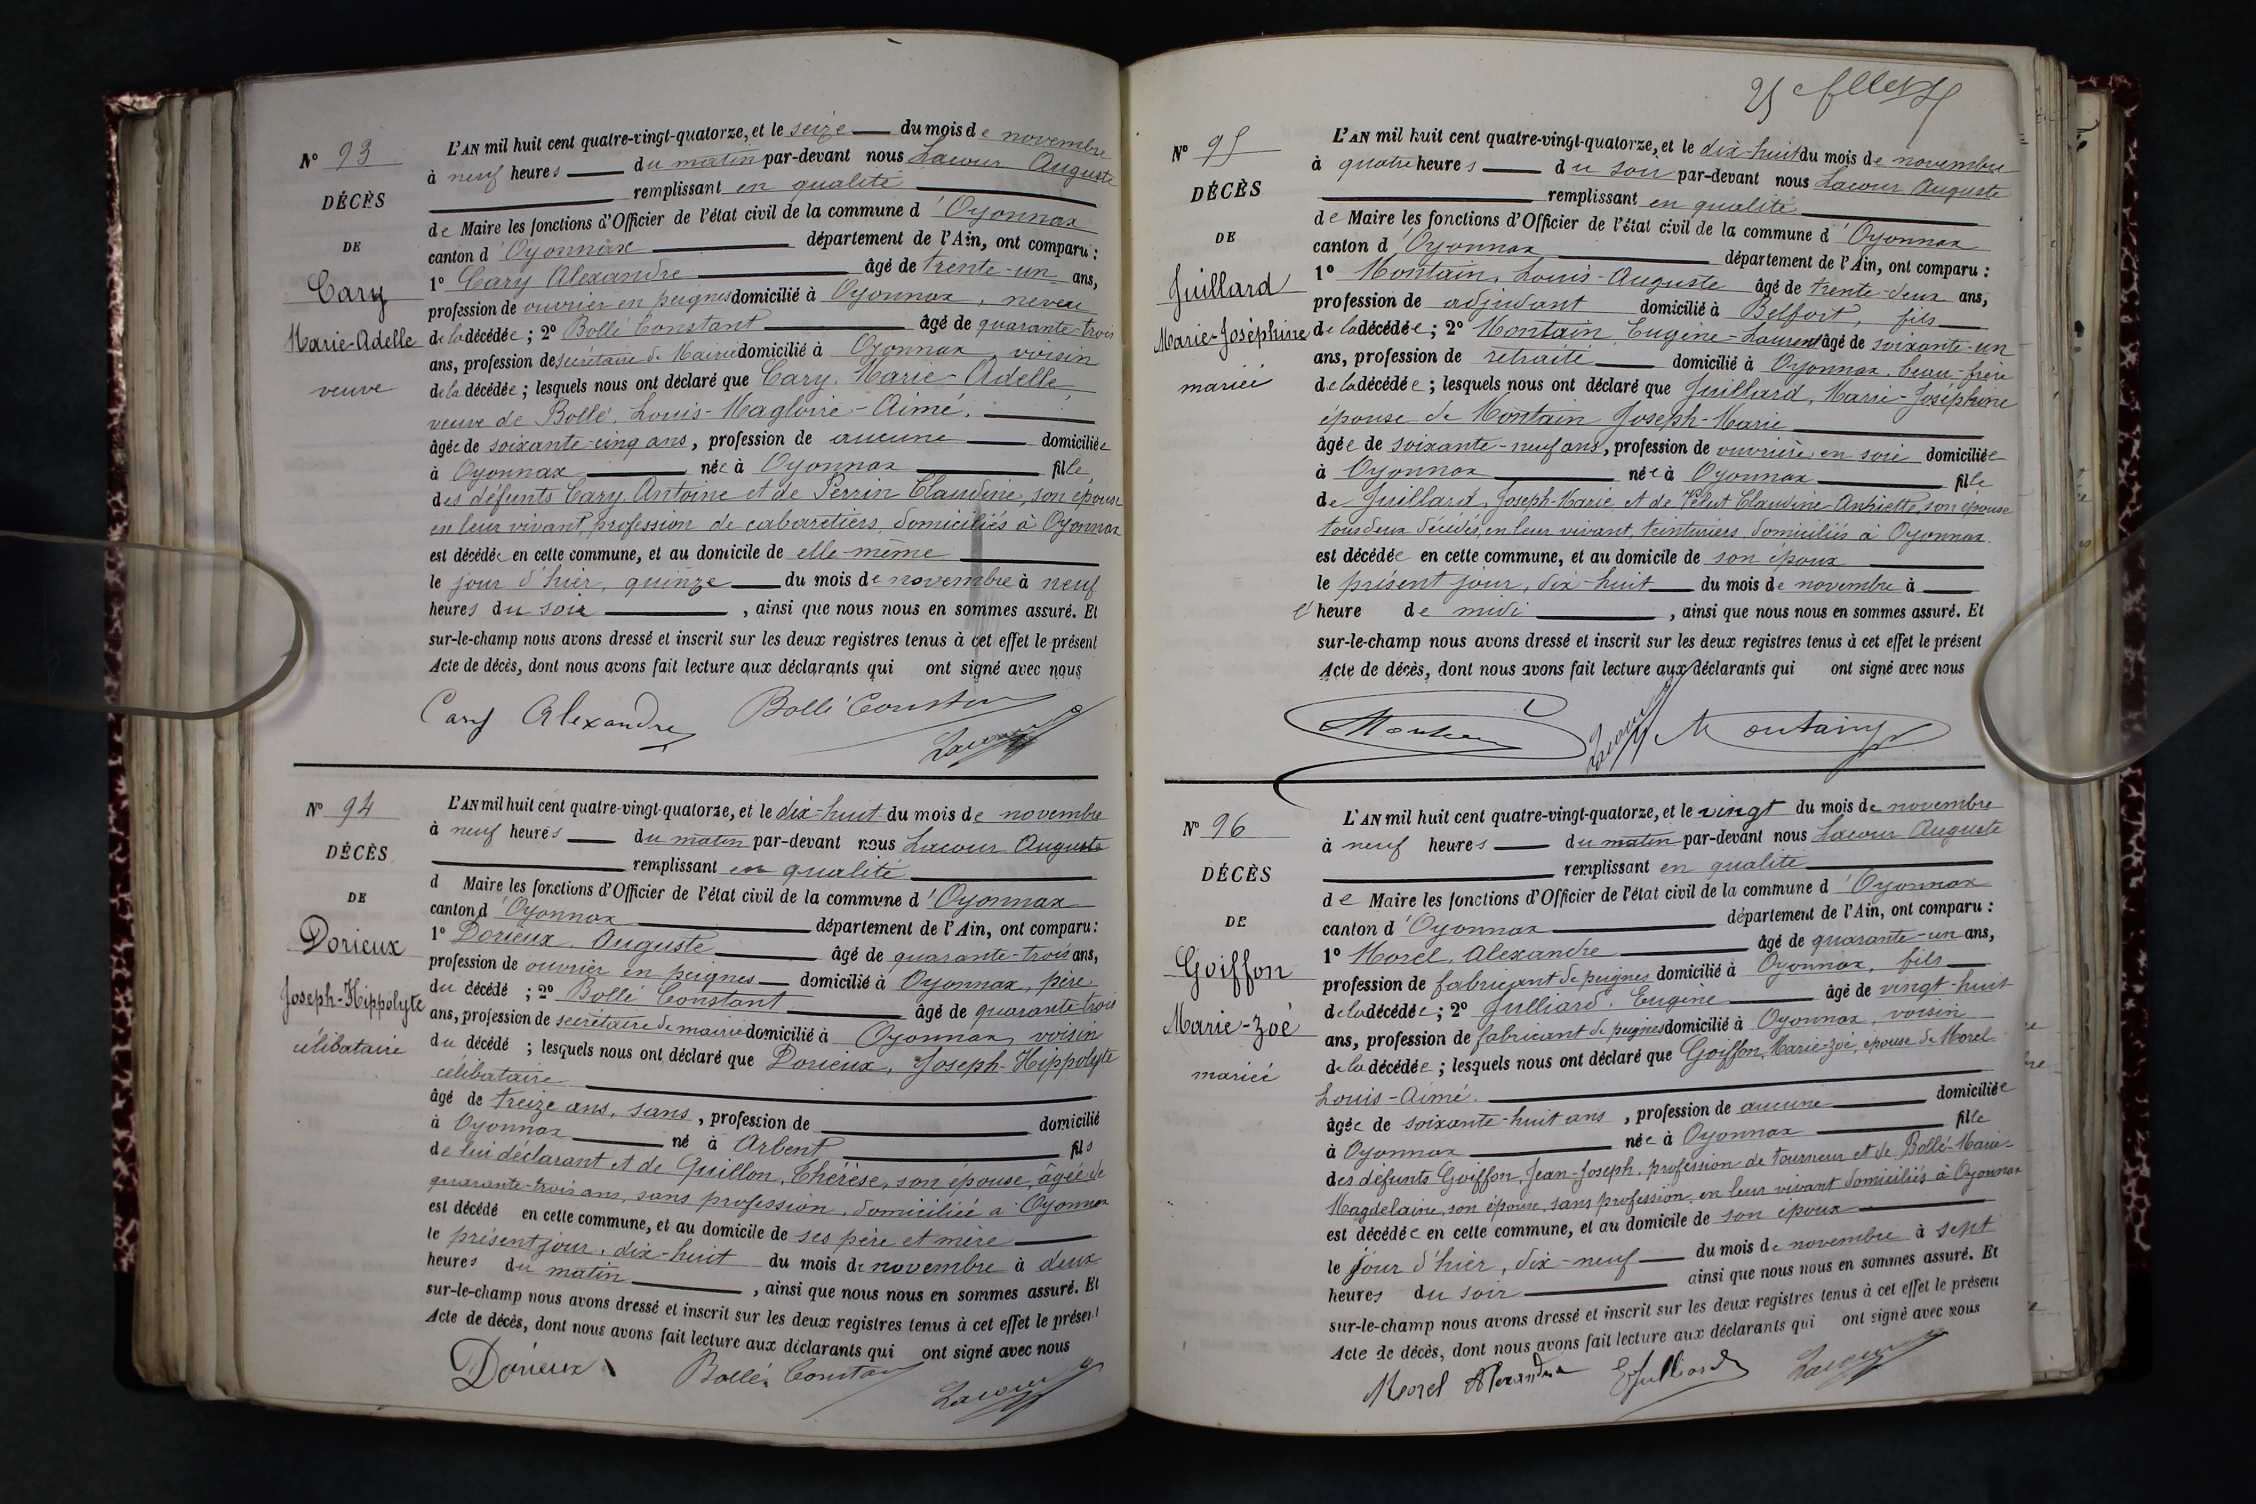 N° 93
DÉCÈS
DE
Cary
Marie-Adelle
veuve
L'AN mil huit cent quatre-vingt-quatorze, et le seize du mois de novembre
à neuf heures du matin par-devant nous Lacour Auguste
remplissant en qualité
de Maire les fonctions d'Officier de l'état civil de la commune d'Oyonnax
canton d'Oyonnax département de l'Ain, ont comparu :
1° Cary Alexandre âgé de trente-un ans,
profession de ouvrier en peignes domicilié à Oyonnax, neveu
de la décédée ; 2° Bollé Constant âgé de quarante-trois
ans, profession de secrétaire de Mairie domicilié à Oyonnax, voisin
de la décédée ; lesquels nous ont déclaré que Cary, Marie-Adelle
veuve de Bollé, Louis-Magloire-Aimé,
âgée de soixante-cinq ans, profession de aucune domiciliée
à Oyonnax née à Oyonnax fille
des défunts Cary Antoine et de Perrin Claudine, son épouse
en leur vivant, profession de cabaretiers, domiciliés à Oyonnax
est décédée en cette commune, et au domicile de elle-même
le jour d'hier, quinze du mois de novembre à neuf
heures du soir, ainsi que nous nous en sommes assuré. Et
sur-le-champ nous avons dressé et inscrit sur les deux registres tenus à cet effet le présent
Acte de décès, dont nous avons fait lecture aux déclarants qui ont signé avec nous
Cary Alexandre Bollé Constant
Lacour
N° 94
DÉCÈS
DE
Dorieux
Joseph-Hippolyte
célibataire
L'AN mil huit cent quatre-vingt-quatorze, et le dix-huit du mois de novembre
à neuf heures du matin par-devant nous Lacour Auguste
remplissant en qualité
d Maire les fonctions d'Officier de l'état civil de la commune d'Oyonnax
canton d'Oyonnax département de l'Ain, ont comparu :
1° Dorieux, Auguste âgé de quarante-trois ans,
profession de ouvrier en peignes domicilié à Oyonnax, père
du décédé ; 2° Bollé Constant âgé de quarante-trois
ans, profession de secrétaire de mairie domicilié à Oyonnax, voisin
du décédé ; lesquels nous ont déclaré que Dorieux, Joseph-Hippolyte
célibataire
âgé de treize ans, sans, profession de domicilié
à Oyonnax né à Arbent fils
de lui déclarant et de Guillon, Thérèse, son épouse, âgée de
quarante-trois ans, sans profession, domiciliée à Oyonnax
est décédé en cette commune, et au domicile de ses père et mère
le présent jour, dix-huit du mois de novembre à deux
heures du matin, ainsi que nous nous en sommes assuré. Et
sur-le-champ nous avons dressé et inscrit sur les deux registres tenus à cet effet le présent
Acte de décès, dont nous avons fait lecture aux déclarants qui ont signé avec nous
Dorieux Bollé Constant Lacour
25
N° 95
DÉCÈS
DE
Juillard
Marie-Joséphine
mariée
L'AN mil huit cent quatre-vingt-quatorze, et le dix-huit du mois de novembre
à quatre heures du soir par-devant nous Lacour Auguste
remplissant en qualité
de Maire les fonctions d'Officier de l'état civil de la commune d'Oyonnax
canton d'Oyonnax département de l'Ain, ont comparu :
1° Montain, Louis-Auguste âgé de trente-deux ans,
profession de adjudant domicilié à Belfort, fils
de la décédée ; 2° Montain, Eugène-Laurent âgé de soixante-un
ans, profession de retraité domicilié à Oyonnax, beau-frère
de la décédée ; lesquels nous ont déclaré que Juillard, Marie-Joséphine
épouse de Montain Joseph-Marie
âgée de soixante-neuf ans, profession de ouvrière en soie domiciliée
à Oyonnax née à Oyonnax fille
de Juillard, Joseph-Marie et de Claudine-Anthiette, son épouse
tous deux décédés, en leur vivant, teinturiers, domiciliés à Oyonnax
est décédée en cette commune, et au domicile de son époux
le présent jour, dix-huit du mois de novembre à
l'heure de midi, ainsi que nous nous en sommes assuré. Et
sur-le-champ nous avons dressé et inscrit sur les deux registres tenus à cet effet le présent
Acte de décès, dont nous avons fait lecture aux déclarants qui ont signé avec nous
Montain Lacour Montain
N° 96
DÉCÈS
DE
Goiffon
Marie-Zoé
mariée
L'AN mil huit cent quatre-vingt-quatorze, et le vingt du mois de novembre
à neuf heures du matin par-devant nous Lacour Auguste
remplissant en qualité
de Maire les fonctions d'Officier de l'état civil de la commune d'Oyonnax
canton d'Oyonnax département de l'Ain, ont comparu :
1° Morel, Alexandre âgé de quarante-un ans,
profession de fabricant de peignes domicilié à Oyonnax, fils
de la décédée ; 2° Julliard, Eugène âgé de vingt-huit
ans, profession de fabricant de peignes domicilié à Oyonnax, voisin
de la décédée ; lesquels nous ont déclaré que Goiffon, Marie-Zoé, épouse de Morel
Louis-Aimé.
âgée de soixante-huit ans, profession de aucune domiciliée
à Oyonnax née à Oyonnax fille
des défunts Goiffon, Jean-Joseph, profession de tourneur et de Bollé-Marie-
Magdelaine, son épouse, sans profession, en leur vivant domiciliés à Oyonnax
est décédée en cette commune, et au domicile de son époux
le jour d'hier, dix-neuf du mois de novembre à sept
heures du soir ainsi que nous nous en sommes assuré. Et
sur-le-champ nous avons dressé et inscrit sur les deux registres tenus à cet effet le présent
Acte de décès, dont nous avons fait lecture aux déclarants qui ont signé avec nous
Morel Alexandre EJulliard Lacour